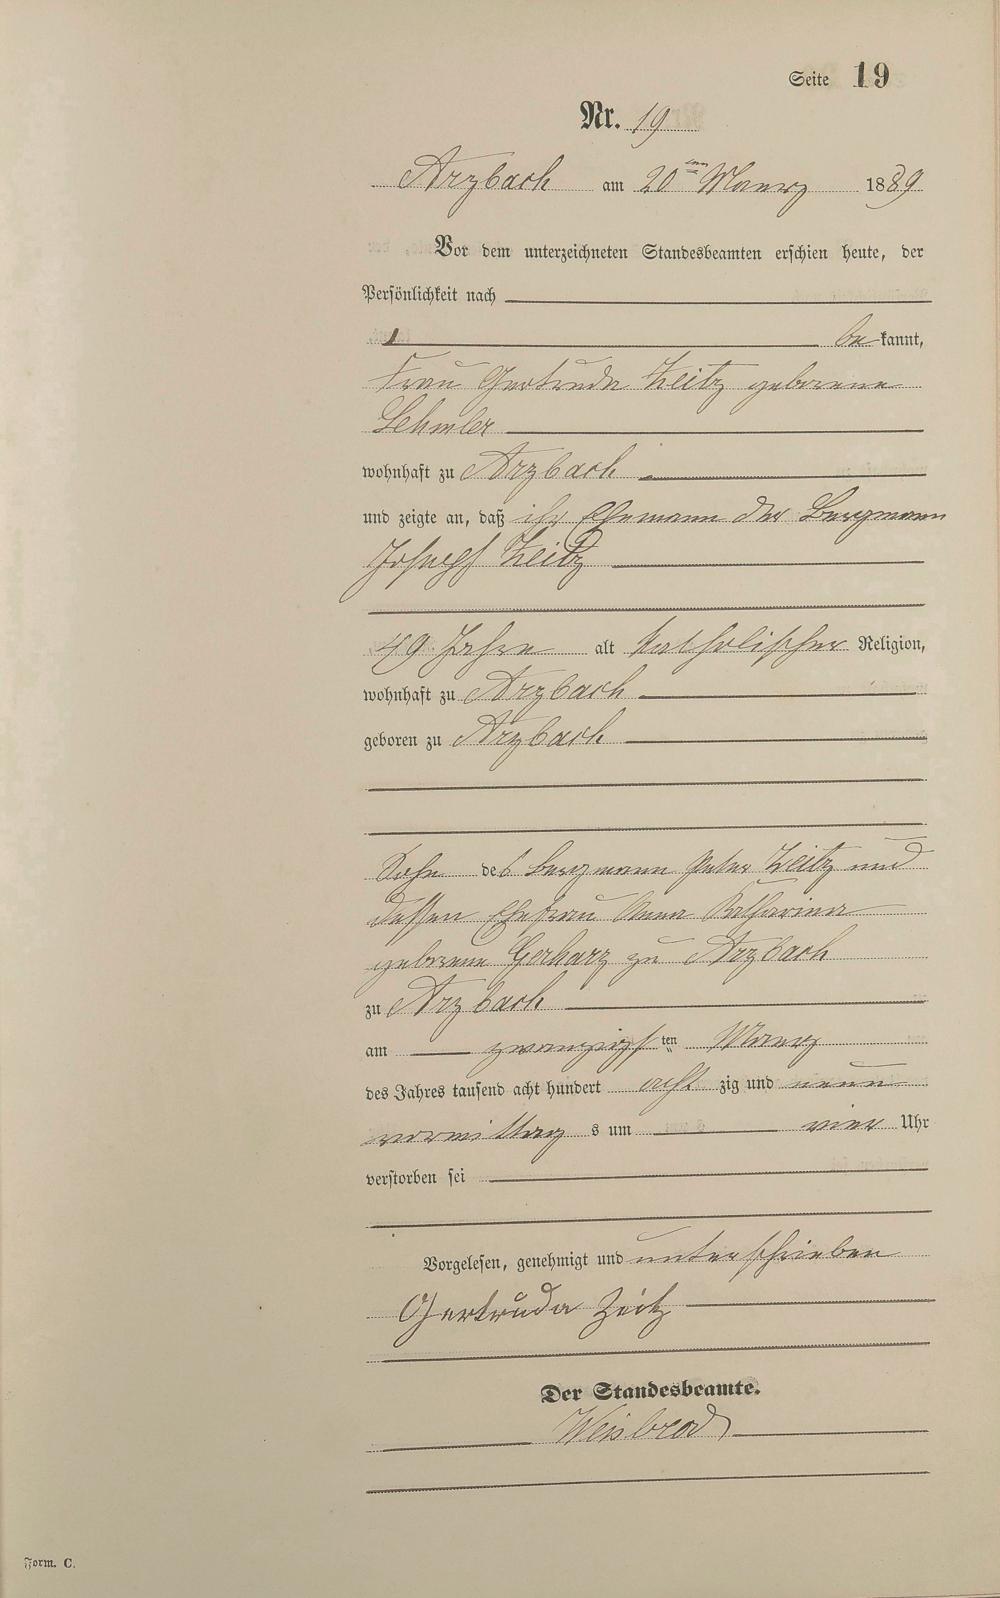 Seite 19
Nr. 19
Arzbach am 20ten Maerz 1889
Vor dem unterzeichneten Standesbeamten erschien heute, der
Persönlichkeit nach
bekannt,
Frau Gertruda Zeitz geborene
Lehmler
wohnhaft zu Arzbach
und zeigte an, daß ihr Ehemann der Bergmann
Joseph Zeitz
49 Jahre alt katholischer Religion,
wohnhaft zu Arzbach
geboren zu Arzbach
Sohn des Bergmann Peter Zeitz und
dessen Ehefrau Anna Katharina
geborene Gerharz zu Arzbach
zu Arzbach
am zwanzigsten Maerz
des Jahres tausend acht hundert acht zig und neun
vormittag s um vier Uhr
verstorben sei
Vorgelesen, genehmigt und unterschrieben
Gertruda Zeitz
Der Standesbeamte.
Weisbrod
Form. C.